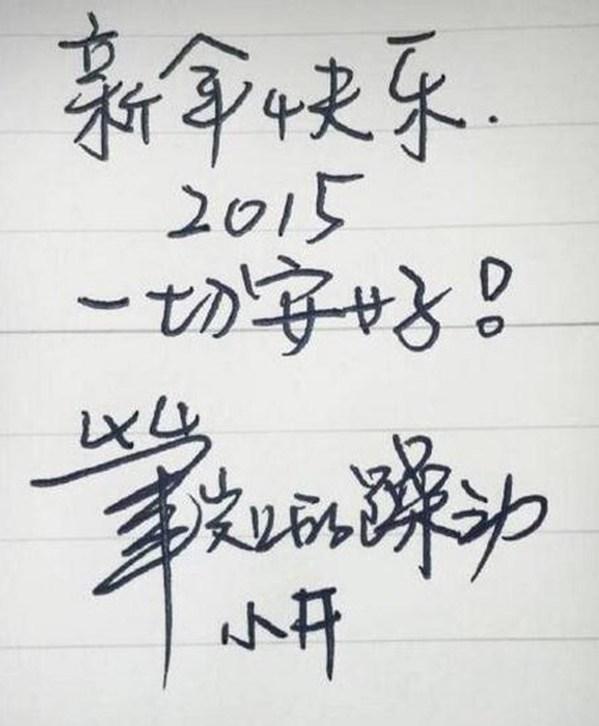 新年快乐.
2015
一切安好!
笔岁的躁动
小开